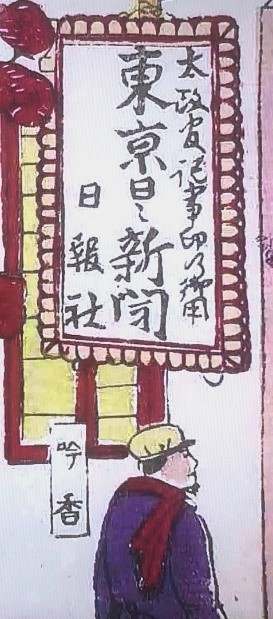 太政官記事印行御用
東京日々新聞
日報社
吟香